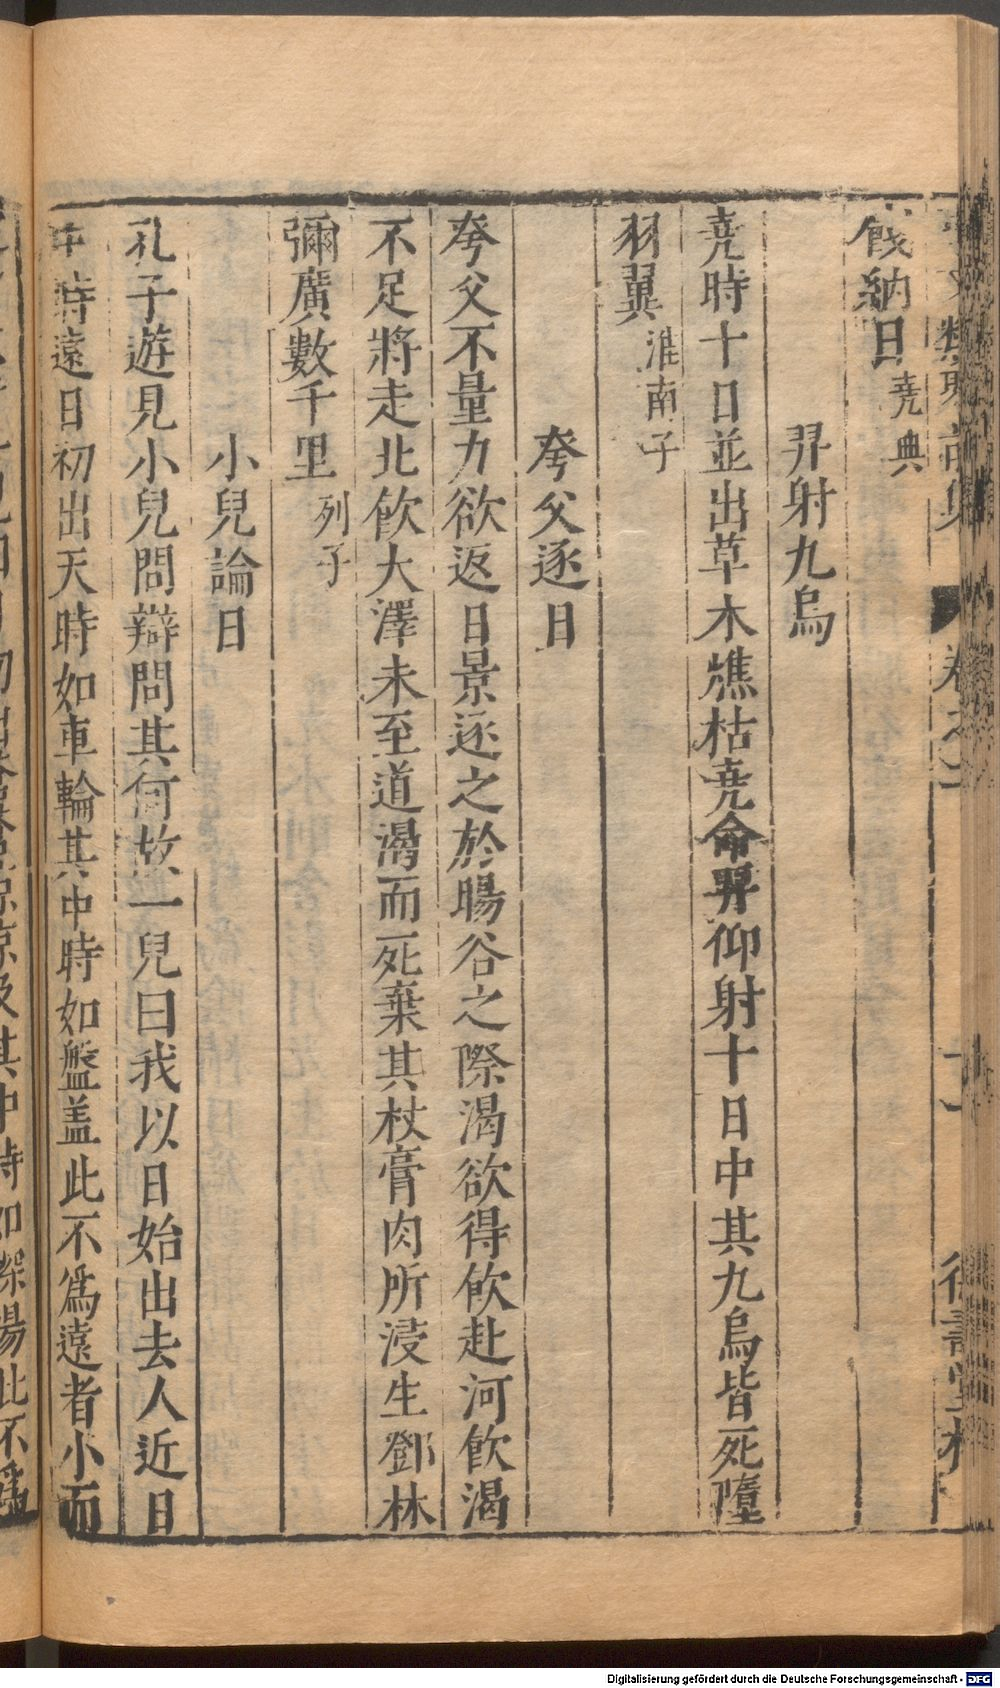 餞納日堯典
羿射九烏
堯時十日並出草木燋枯堯命羿仰射十日中其九烏皆死墮
羽翼淮南子
夸父逐日
夸父不量力欲返日景逐之於暘谷之際渴欲得飲赴河飲渴
不足將走北飲大澤未至道渴而死棄其杖膏肉所浸生鄧林
彌廣數千里列子
小兒論日
孔子遊見小兒問辯問其何故一兒曰我以日始出去人近日
中時遠日初出天時如車輪其中時如盤盖此不為遠者小而
及其中時如探湯此不為
Digitalisierung gefördert durch die Deutsche Forschungsgemeinschaft - DFG